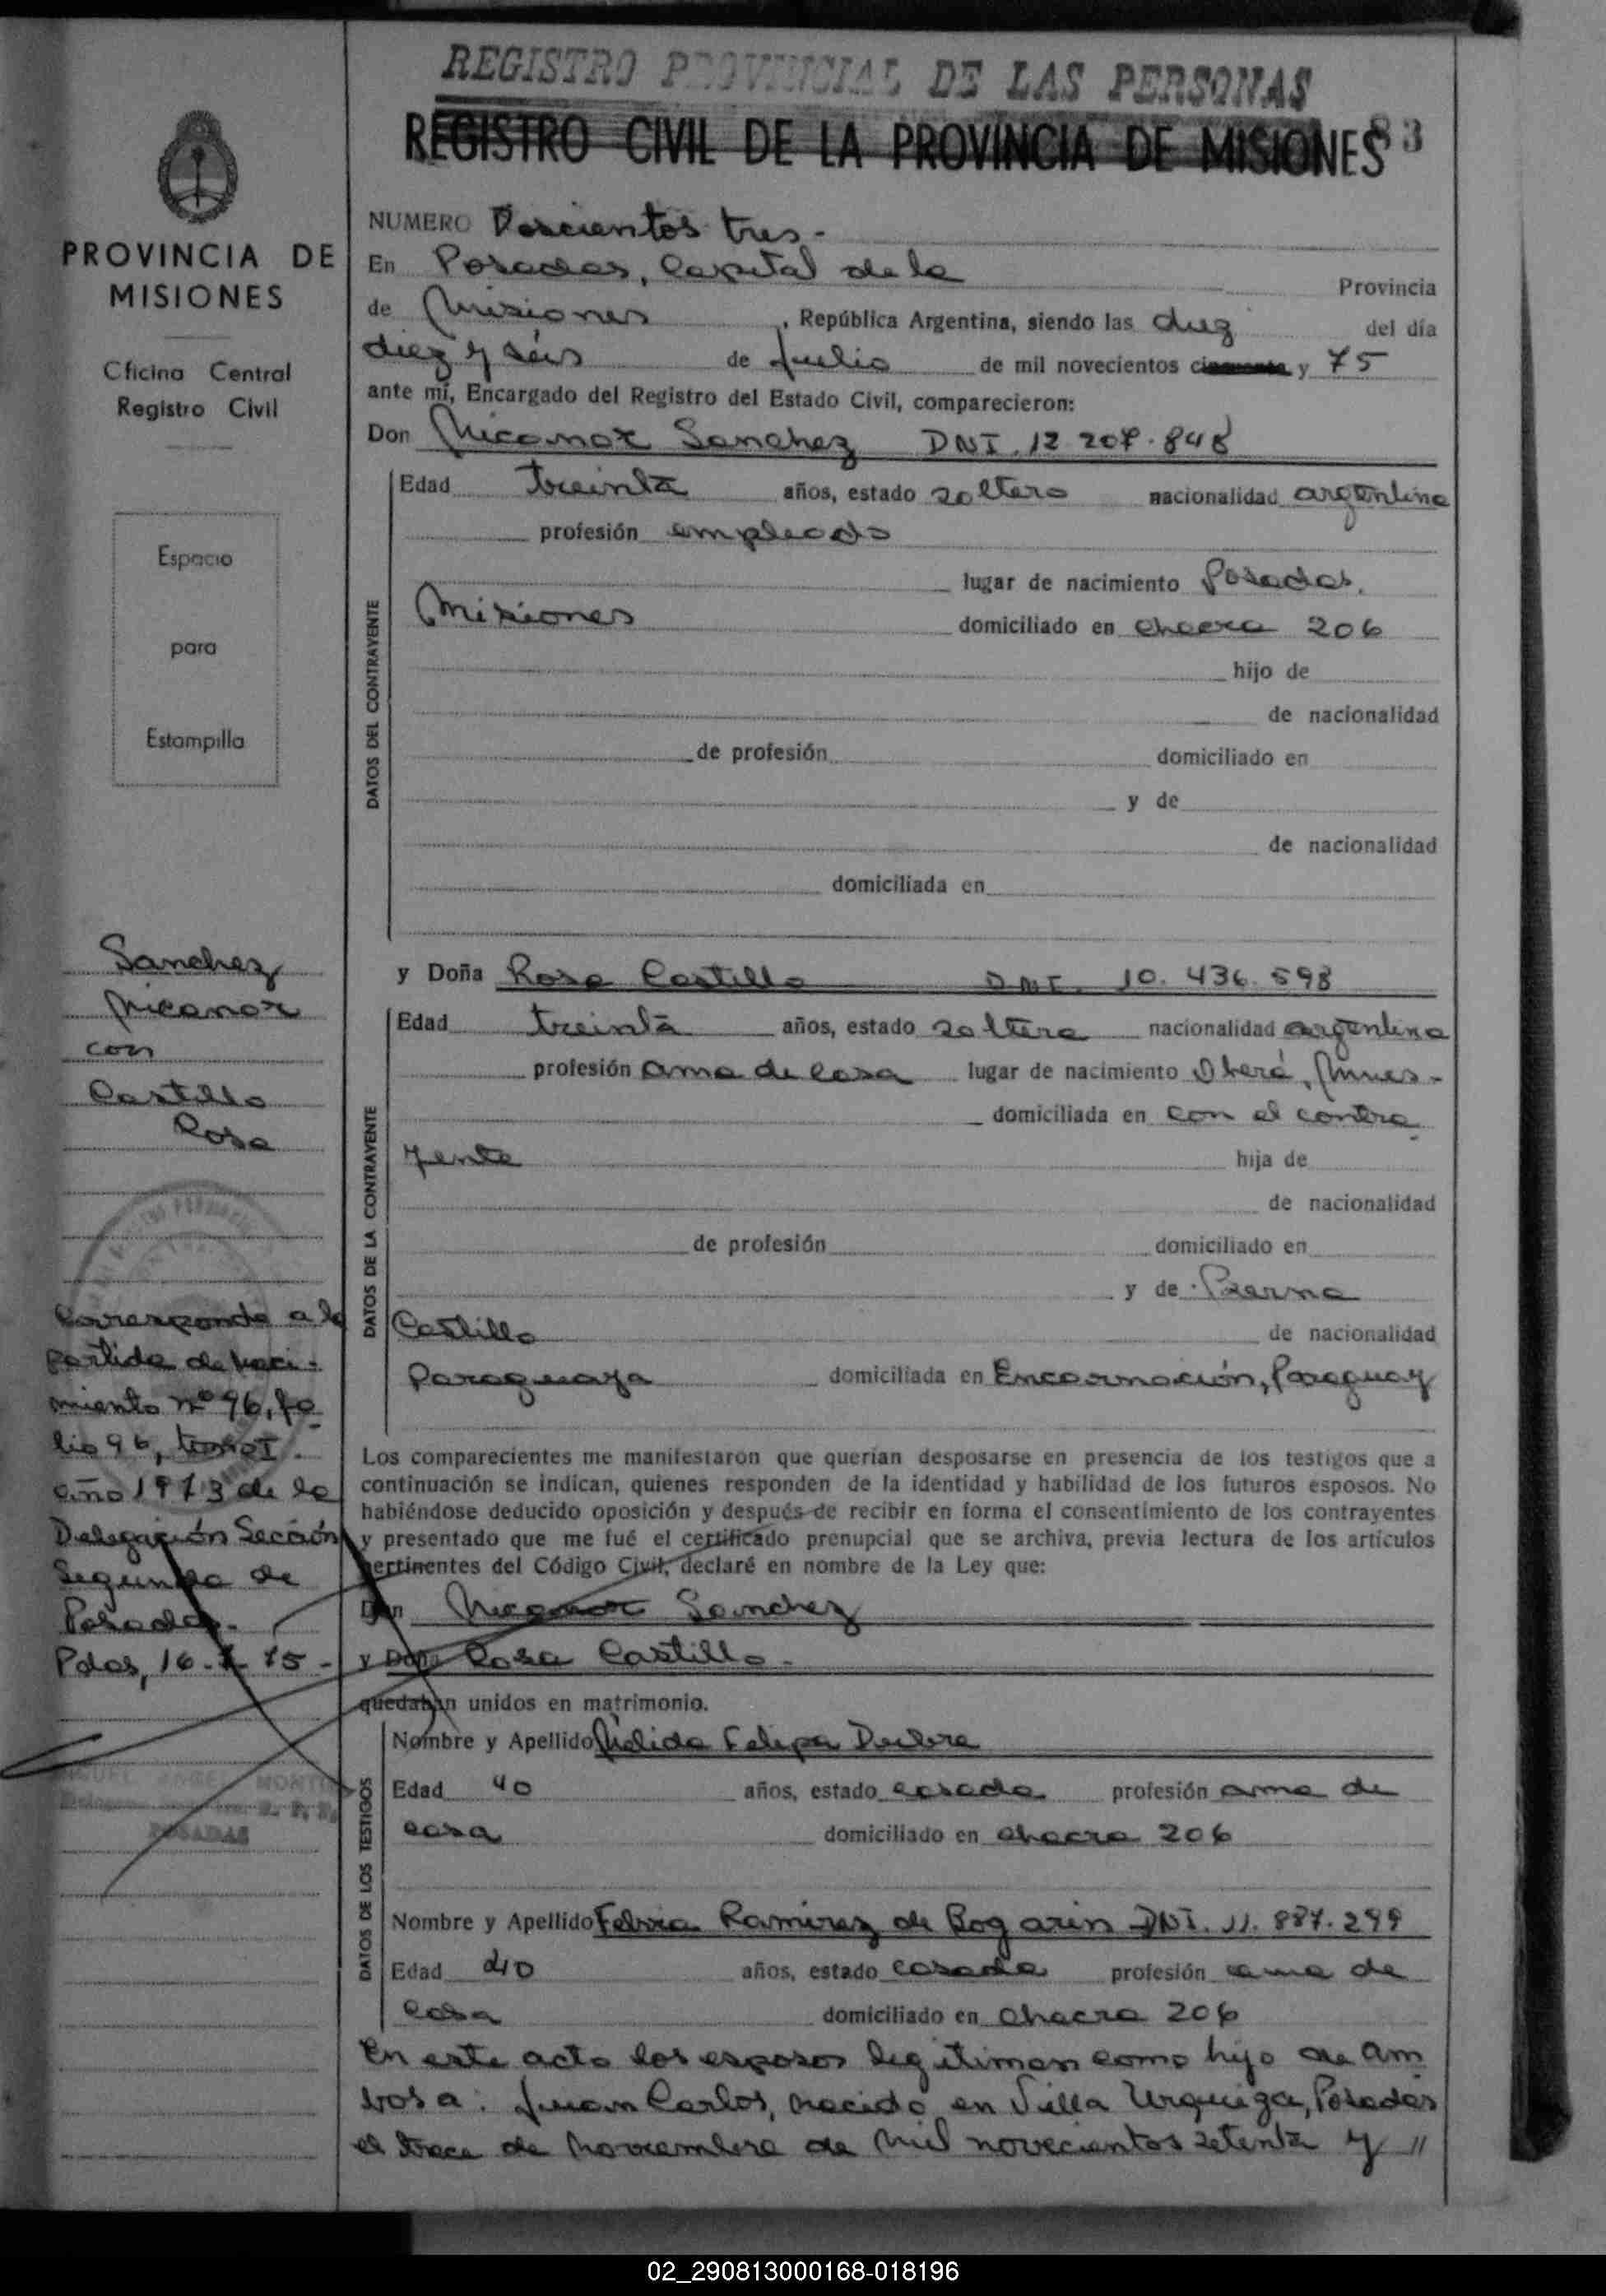 REGISTRO PROVINCIAL DE LAS PERSONAS
REGISTRO CIVIL DE LA PROVINCIA DE MISIONES
83
PROVINCIA DE
MISIONES
Oficina Central
Registro Civil
Espacio
para
Estampilla
Sanchez
Nicanor
con
Castillo
Rosa
Corresponde a la
partida de naci-
miento nº 96, fo
lio 96, tomo I.
año 1973 de la
Delegación Sección
Segunda de
Posadas.
Pdas, 16-7-75-
MIGUEL ANGEL
POSADAS
NUMERO Doscientos tres.-
En Posadas, Capital de la Provincia
de Misiones, República Argentina, siendo las diez del día
diez y séis de Julio de mil novecientos cincuenta y 75
ante mí, Encargado del Registro del Estado Civil, comparecieron:
Don Nicanor Sanchez DNI. 12 207.848
DATOS DEL CONTRAYENTE
Edad treinta años, estado soltero nacionalidad argentina
profesión empleado
lugar de nacimiento Posadas,
Misiones domiciliado en chacra 206
hijo de
de nacionalidad
de profesión domiciliado en
y de
de nacionalidad
domiciliada en
y Doña Rosa Castillo DNI. 10.436.598
DATOS DE LA CONTRAYENTE
Edad treinta años, estado soltera nacionalidad argentina
profesión ama de casa lugar de nacimiento Oberá, Mnes-
domiciliada en con el contra
yente hija de
de nacionalidad
de profesión domiciliado en
y de
Castillo de nacionalidad
Paraguaya domiciliada en Encarnación, Paraguay
Los comparecientes me manifestaron que querían desposarse en presencia de los testigos que a
continuación se indican, quienes responden de la identidad y habilidad de los futuros esposos. No
habiéndose deducido oposición y después de recibir en forma el consentimiento de los contrayentes
y presentado que me fué el certificado prenupcial que se archiva, previa lectura de los artículos
pertinentes del Código Civil, declaré en nombre de la Ley que:
Don Nicanor Sanchez
y Doña Rosa Castillo.-
quedaban unidos en matrimonio.
DATOS DE LOS TESTIGOS
Nombre y Apellido Nélida Felipa
Edad 40 años, estado casada profesión ama de
casa domiciliado en chacra 206
Nombre y Apellido Ramirez de Bogarin DNI. 11.887.299
Edad 40 años, estado casada profesión ama de
casa domiciliado en chacra 206
En este acto los esposos legitiman como hijo de am
bos a: Juan Carlos, nacido en Villa Urquiza, Posadas
el trece de noviembre de mil novecientos setenta y "
02_290813000168-018196